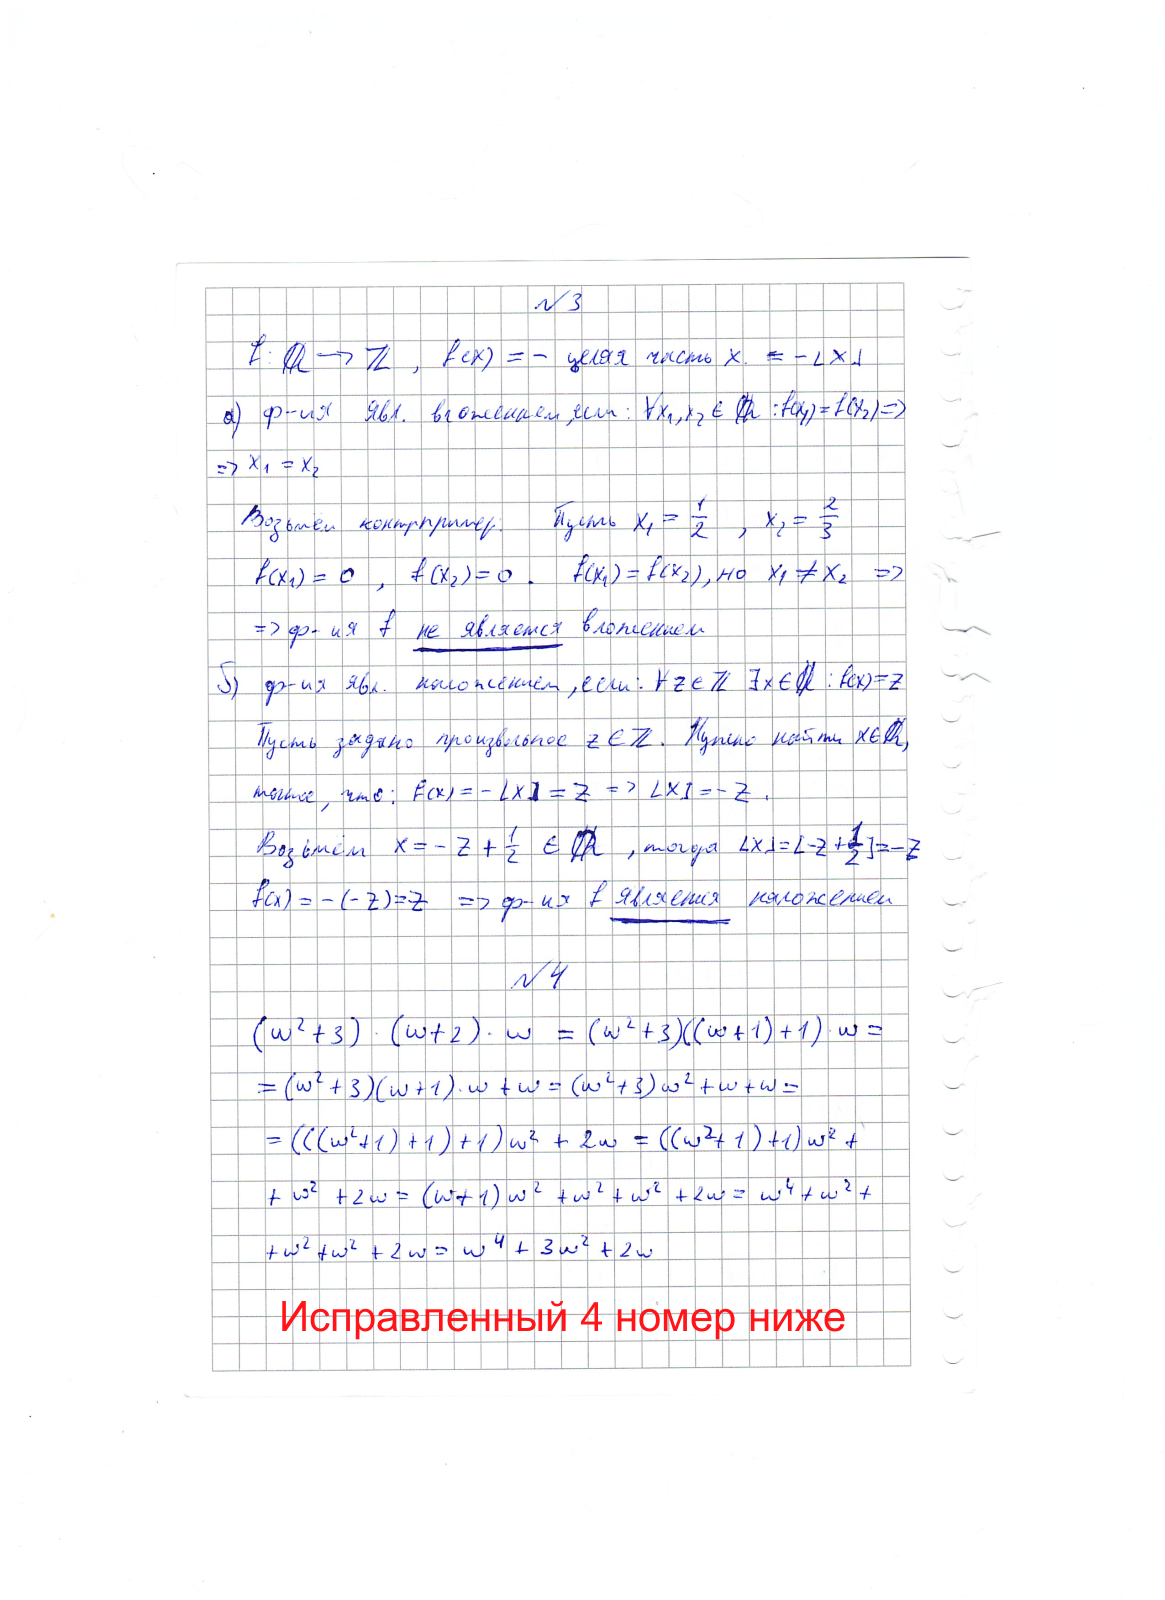 №3
f: ℚ → ℤ, f(x) = - целая часть x. = -⌊x⌋
а) ф-ия явл. вложением, если: ∀x₁,x₂ ∈ ℚ : f(x₁) = f(x₂) =>
=> x₁ = x₂
Возьмём контрпример. Пусть x₁ = 1/2, x₂ = 2/3
f(x₁) = 0, f(x₂) = 0. f(x₁) = f(x₂), но x₁ ≠ x₂ =>
=> ф-ия f не является вложением
б) ф-ия явл. наложением, если: ∀z ∈ ℤ ∃x ∈ ℚ : f(x) = z
Пусть задано произвольное z ∈ ℤ. Нужно найти x ∈ ℚ,
такое, что: f(x) = -⌊x⌋ = z => ⌊x⌋ = -z.
Возьмём x = -z + 1/2 ∈ ℚ, тогда ⌊x⌋ = ⌊-z + 1/2⌋ = -z
f(x) = -(-z) = z => ф-ия f является наложением
№4
(ω² + 3) · (ω + 2) · ω = (ω² + 3)((ω + 1) + 1) · ω =
= (ω² + 3)(ω + 1) · ω + ω = (ω² + 3)ω² + ω + ω =
= (((ω² + 1) + 1) + 1)ω² + 2ω = ((ω² + 1) + 1)ω² +
+ ω² + 2ω = (ω + 1)ω² + ω² + ω² + 2ω = ω⁴ + ω² +
+ ω² + ω² + 2ω = ω⁴ + 3ω² + 2ω
Исправленный 4 номер ниже